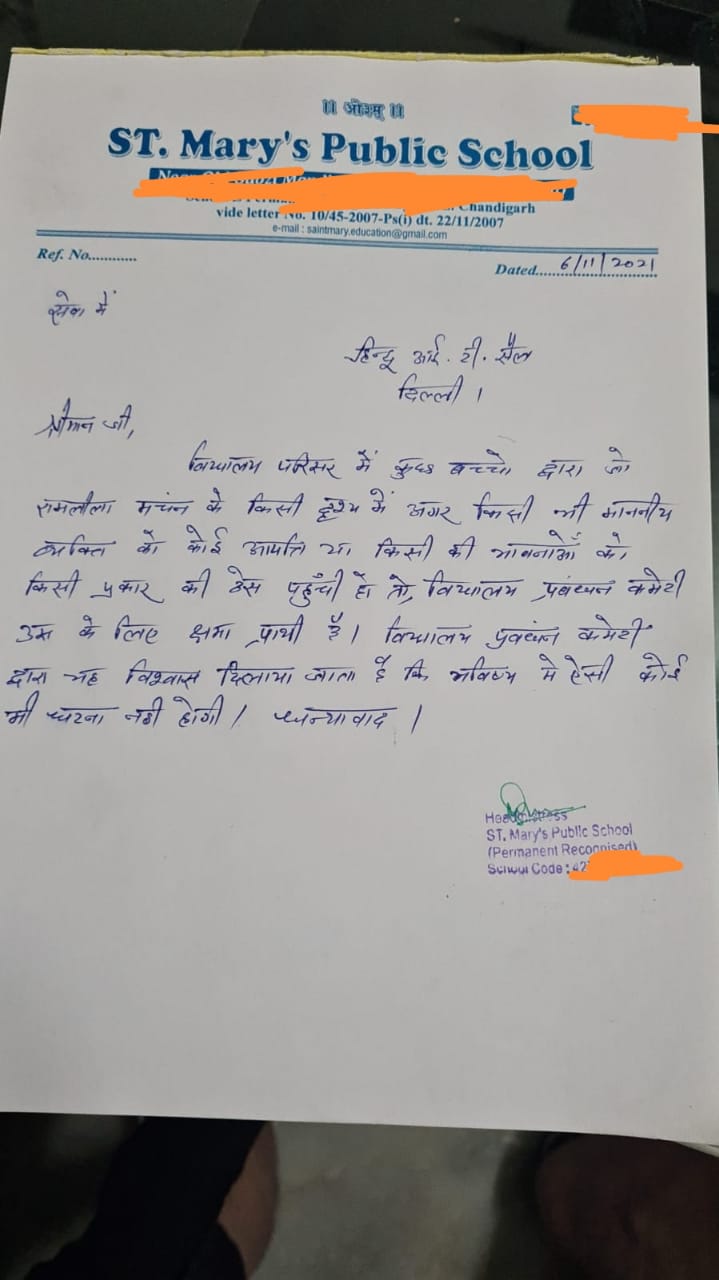 || ओ३म् ||
ST. Mary's Public School
Chandigarh
vide letter No. 10/45-2007-Ps(i) dt. 22/11/2007
e-mail : saintmary.education@gmail.com
Ref. No............
Dated.... 6/11/2021
सेवा में
हिन्दू आई. टी. सैल
दिल्ली ।
श्रीमान जी,
विद्यालय परिसर में कुछ बच्चो द्वारा जो
रामलीला मचंन के किसी दृश्य में अगर किसी भी माननीय
व्यक्ति को कोई आपत्ति या किसी की भावनाओं को
किसी प्रकार की ठेस पहुँची हो तो, विद्यालय प्रबंधन कमेटी
उस के लिए क्षमा प्रार्थी है । विद्यालय प्रबंधन कमेटी
द्वारा यह विश्वास दिलाया जाता है कि भविष्य मे ऐसी कोई
भी घटना नही होगी । धन्यावाद ।
Headmistress
ST. Mary's Public School
(Permanent Recognised)
School Code : 42